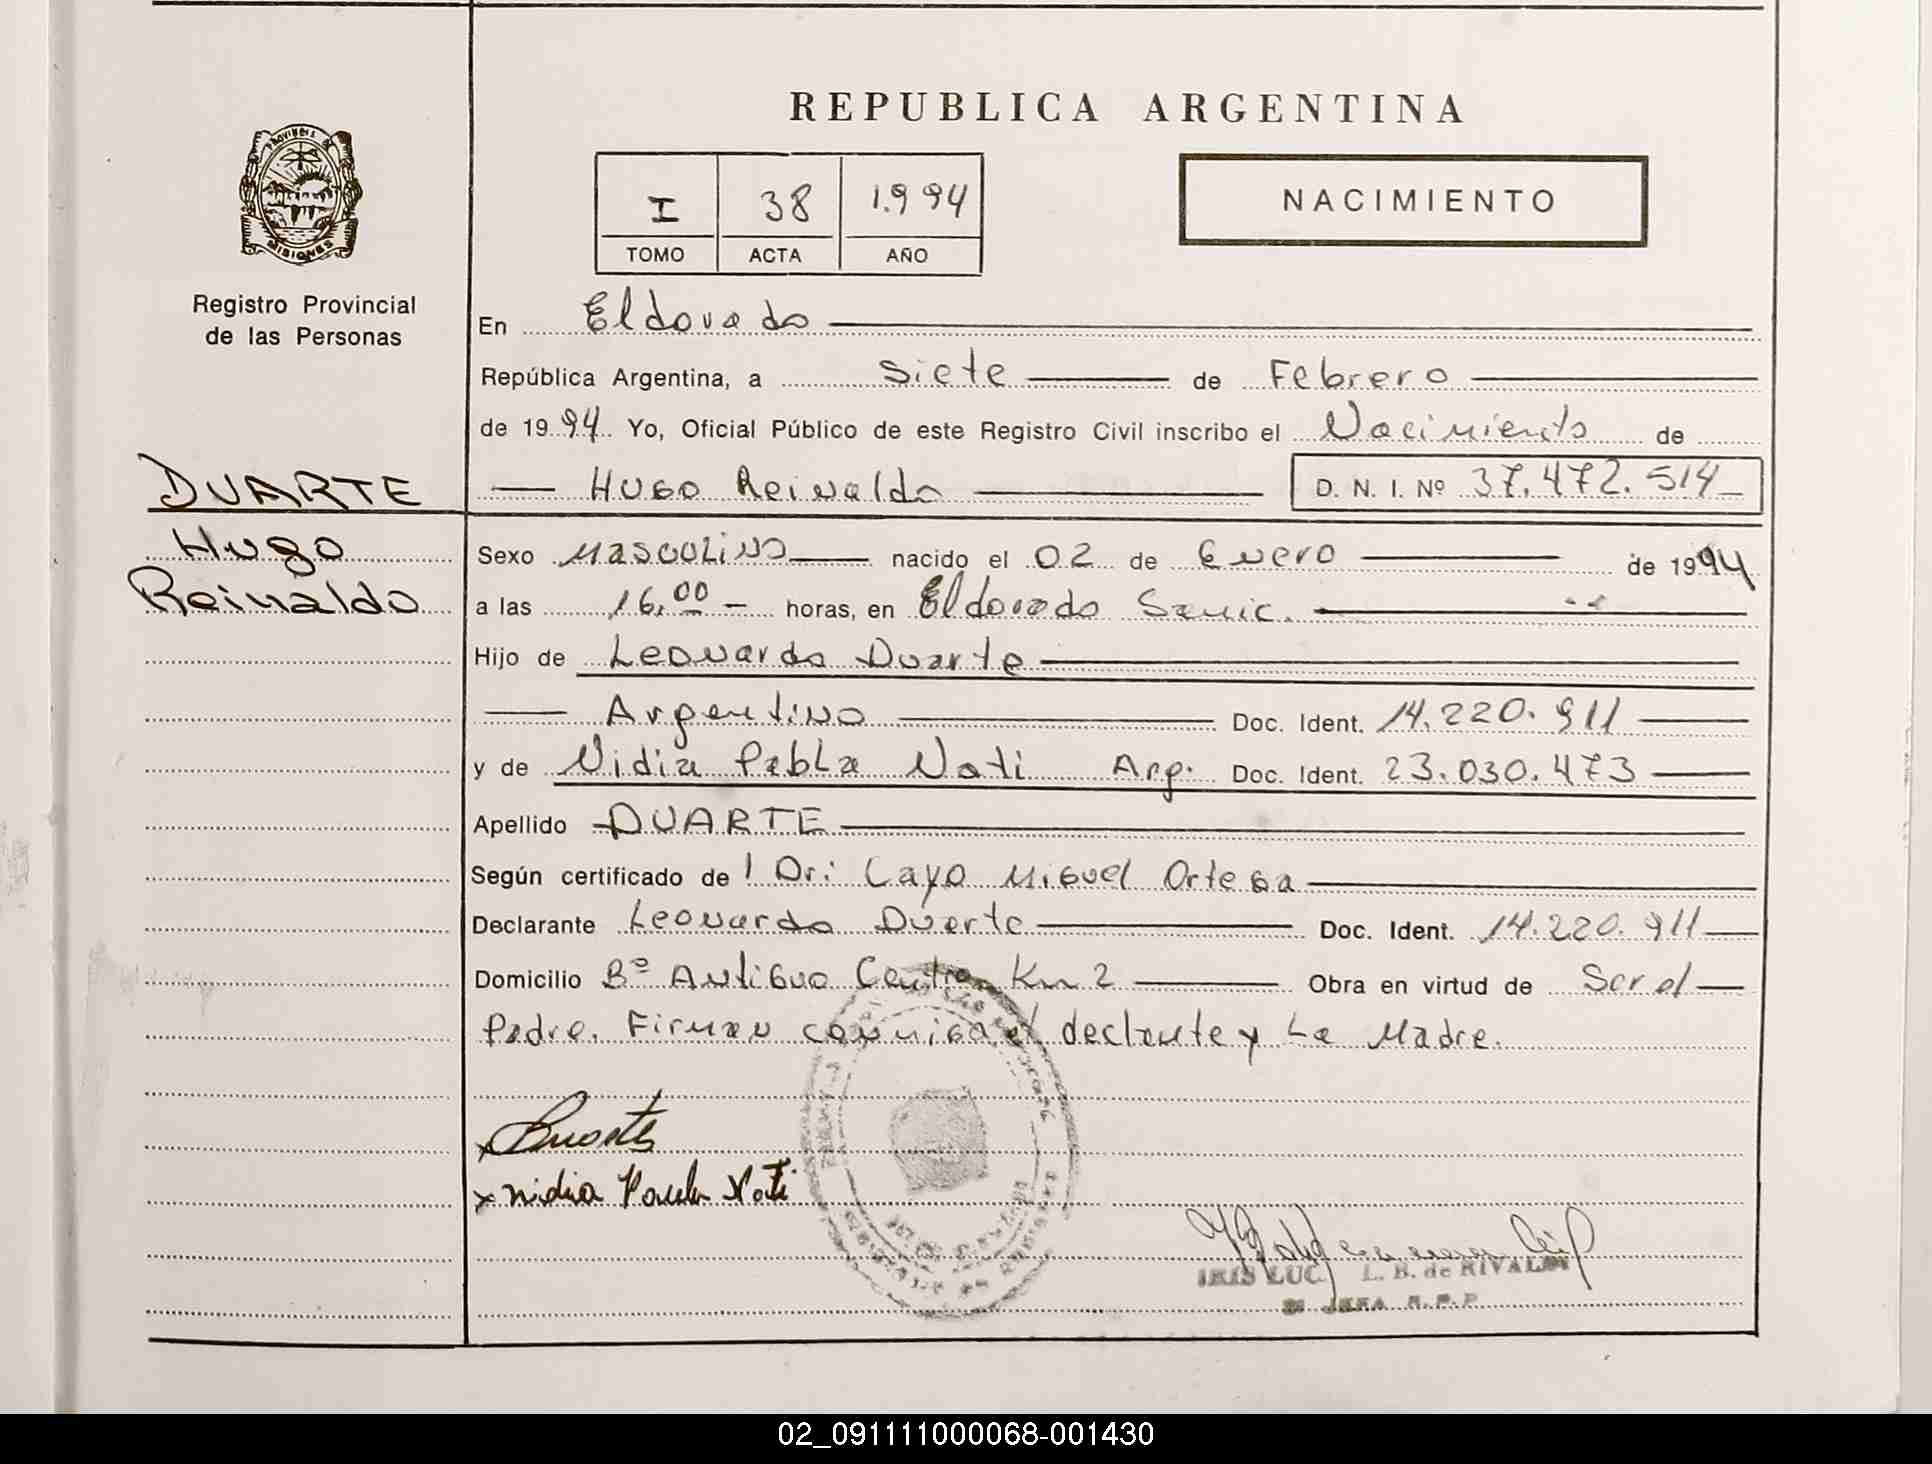 PROVINCIA DE
MISIONES
Registro Provincial
de las Personas
DUARTE
Hugo
Reinaldo
REPUBLICA ARGENTINA
I 38 1.994
TOMO ACTA AÑO
NACIMIENTO
En Eldorado
República Argentina, a Siete de Febrero
de 1994. Yo, Oficial Público de este Registro Civil inscribo el Nacimiento de
Hugo Reinaldo D. N. I. Nº 37.472.514
Sexo Masculino nacido el 02 de Enero de 1994
a las 16,00 horas, en Eldorado
Hijo de Leonardo Duarte
Argentino Doc. Ident. 14.220.911
y de Nidia Pabla Nati Arg. Doc. Ident. 23.030.473
Apellido DUARTE
Según certificado de Dr: Cayo Miguel Ortega
Declarante Leonardo Duarte Doc. Ident. 14.220.911
Domicilio Bº Antiguo Centro Km 2 Obra en virtud de Ser el
Padre. Firman conmigo el declante y La Madre.
Duarte
x nidia Nati
L. B. de RIVALDI
JEFA R.P.P
02_091111000068-001430